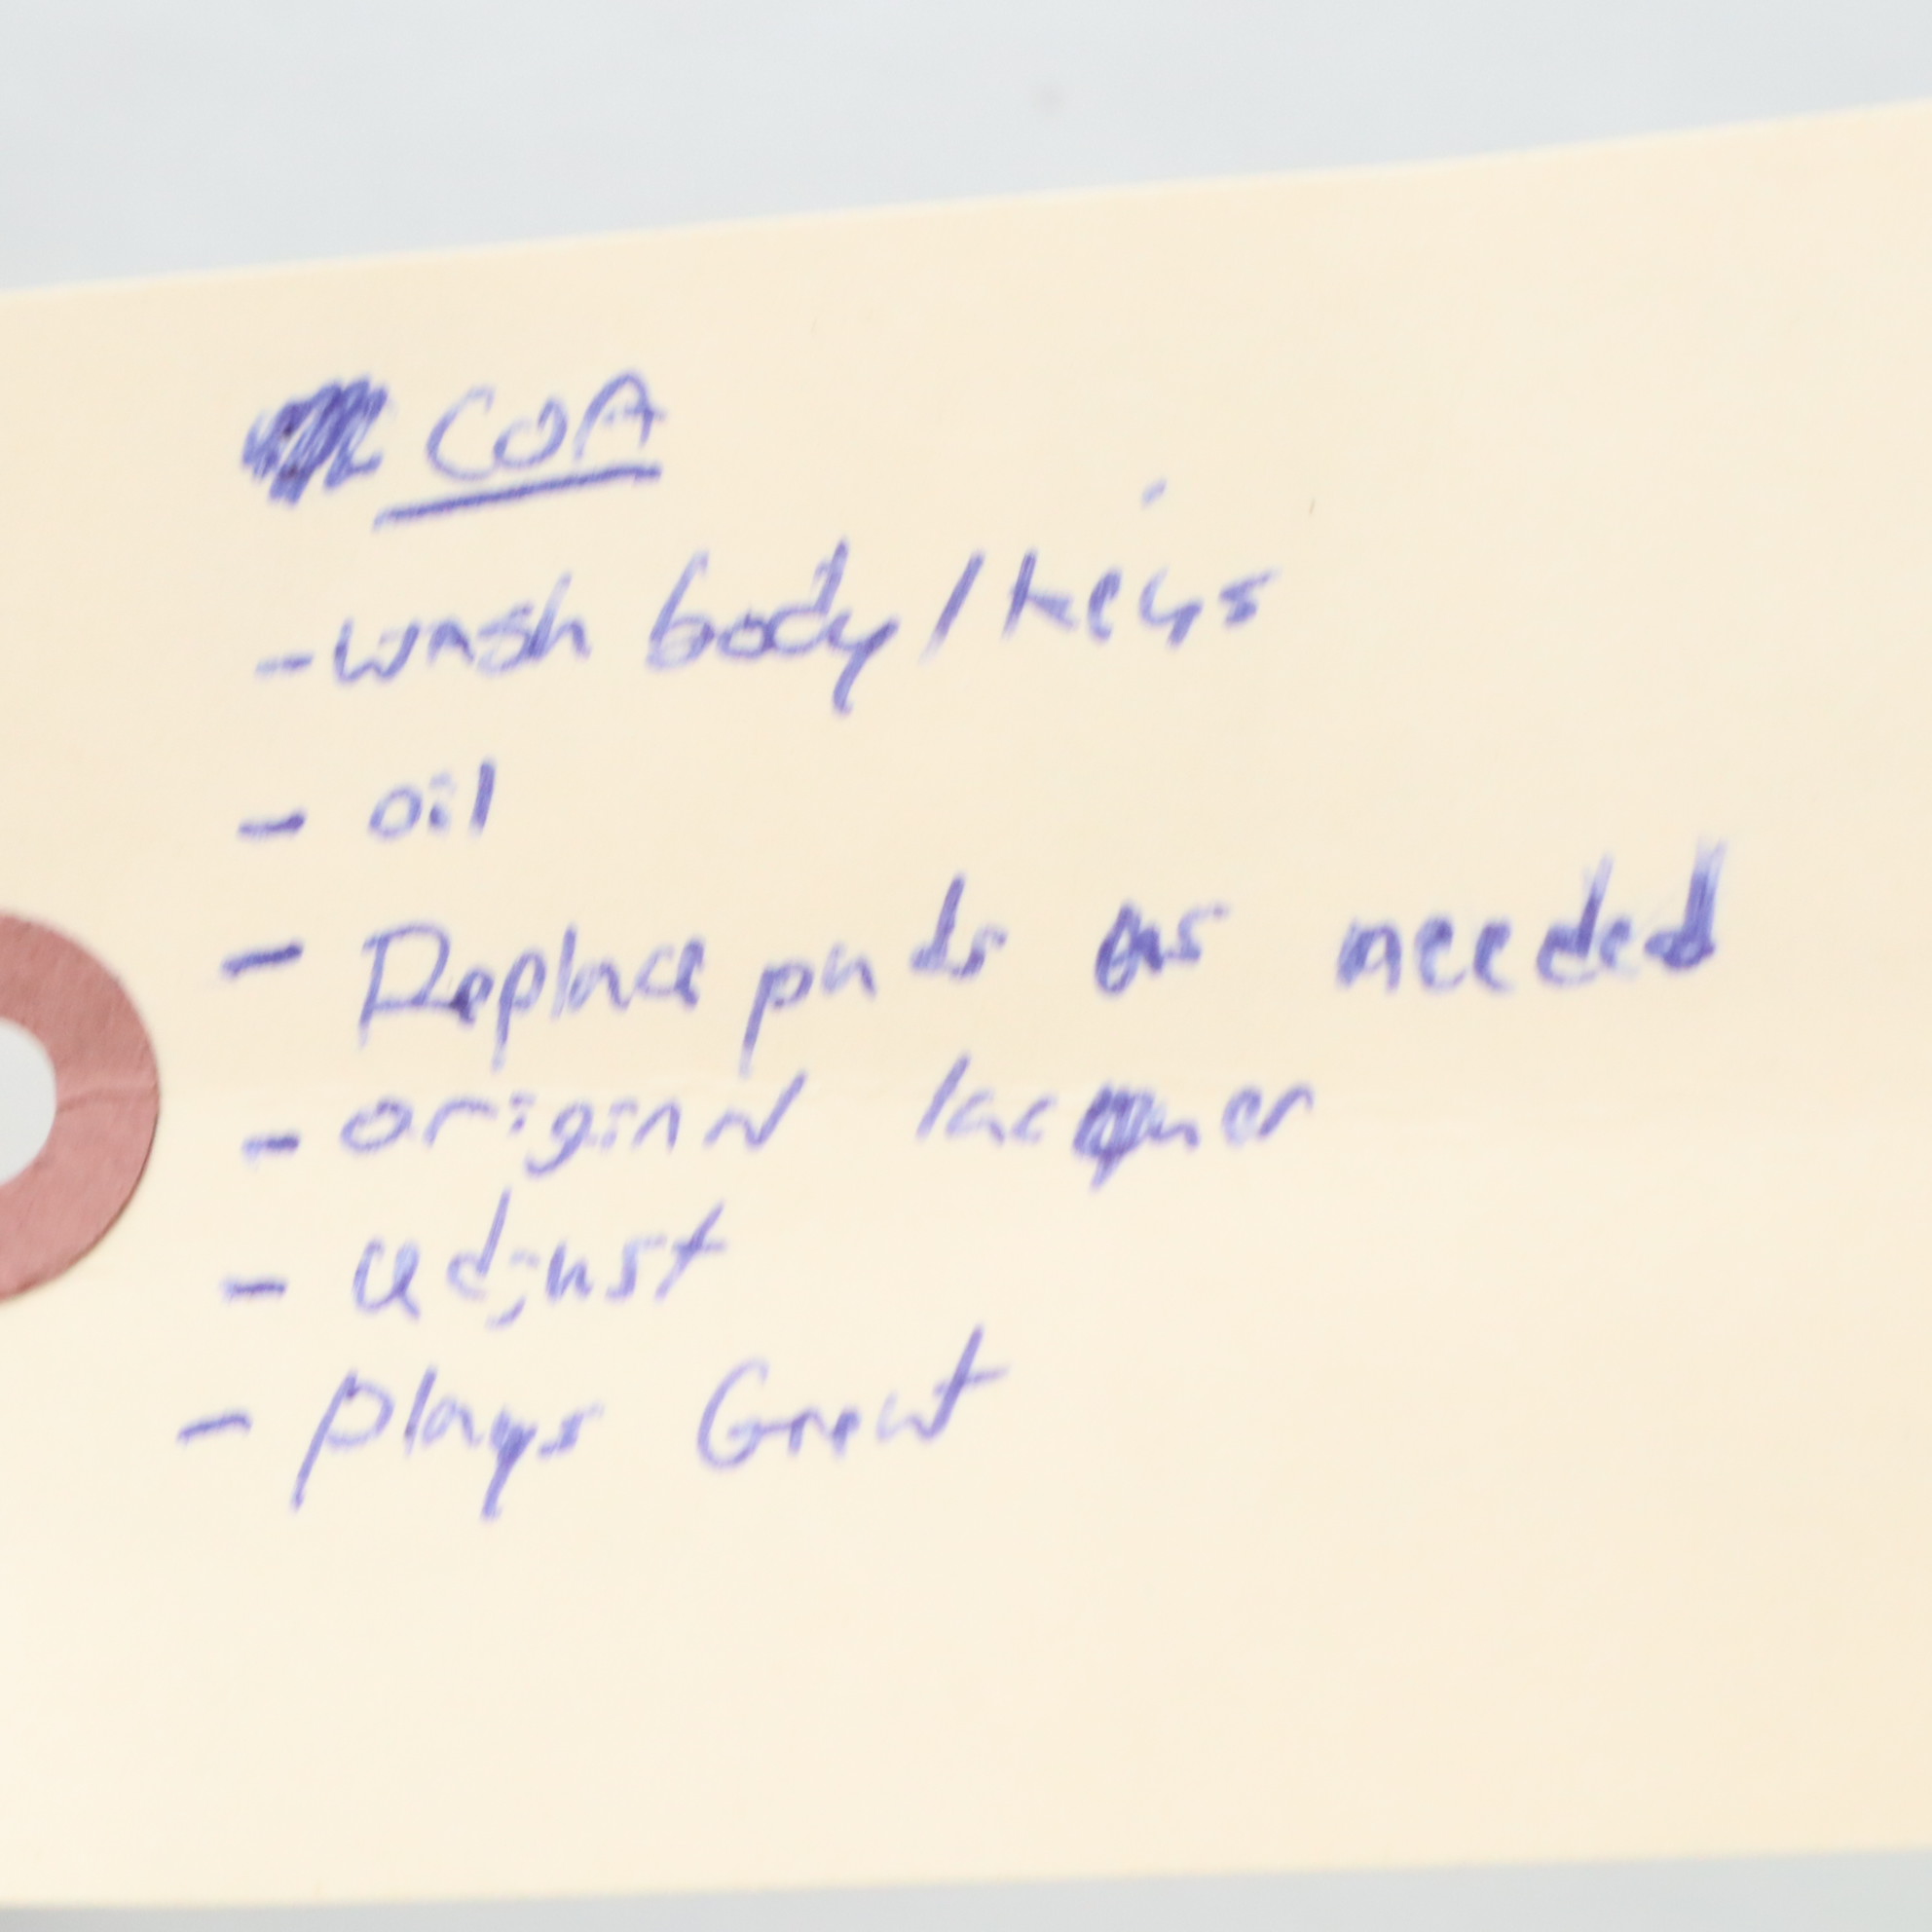 COA
- wash body/keys
- oil
- Replace pads as needed
- original lacquer
- adjust
- plays Great